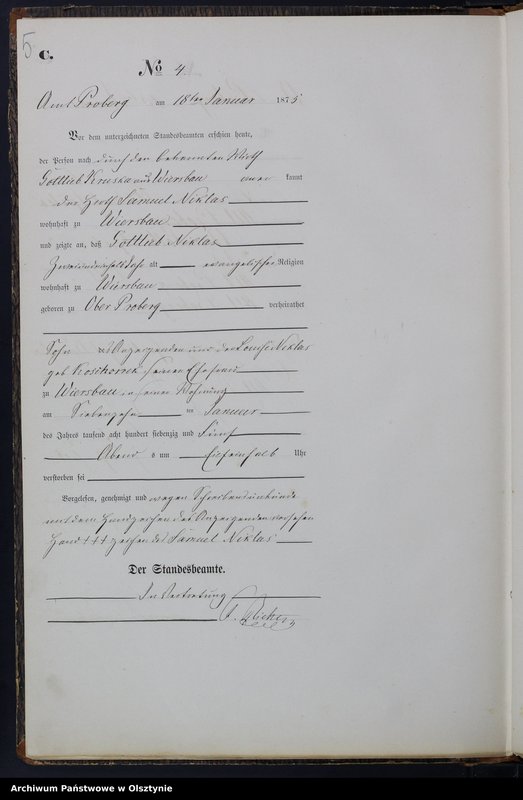 5
C.
No 4
Amt Proberg am 18ten Januar 1875
Vor dem unterzeichneten Standesbeamten erschien heute,
der Person nach durch den bekannten Wirth
Gottlieb Kruska aus Wiersbau kannt
der Wirth Samuel Niklas
wohnhaft zu Wiersbau
und zeigte an, daß Gottlieb Niklas
alt evangelischer Religion
wohnhaft zu Wiersbau
geboren zu Ober Proberg verheirathet
Sohn des Anzeigenden und der Louise Niklas
geb seiner Ehefrau
zu Wiersbau in seiner Wohnung
am Siebenzehn ten Januar
des Jahres tausend acht hundert siebenzig und fünf
Abend s um Uhr
verstorben sei
Vorgelesen, genehmigt und wegen Schreibensunkunde
mit dem Handzeichen des Anzeigenden versehen
Hand +++ zeichen des Samuel Niklas
Der Standesbeamte.
In Vertretung
Archiwum Państwowe w Olsztynie